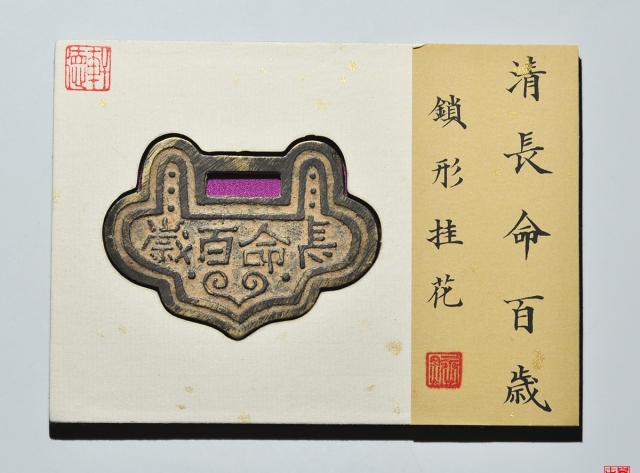 清長命百歳
鎖形挂花
長命百歲